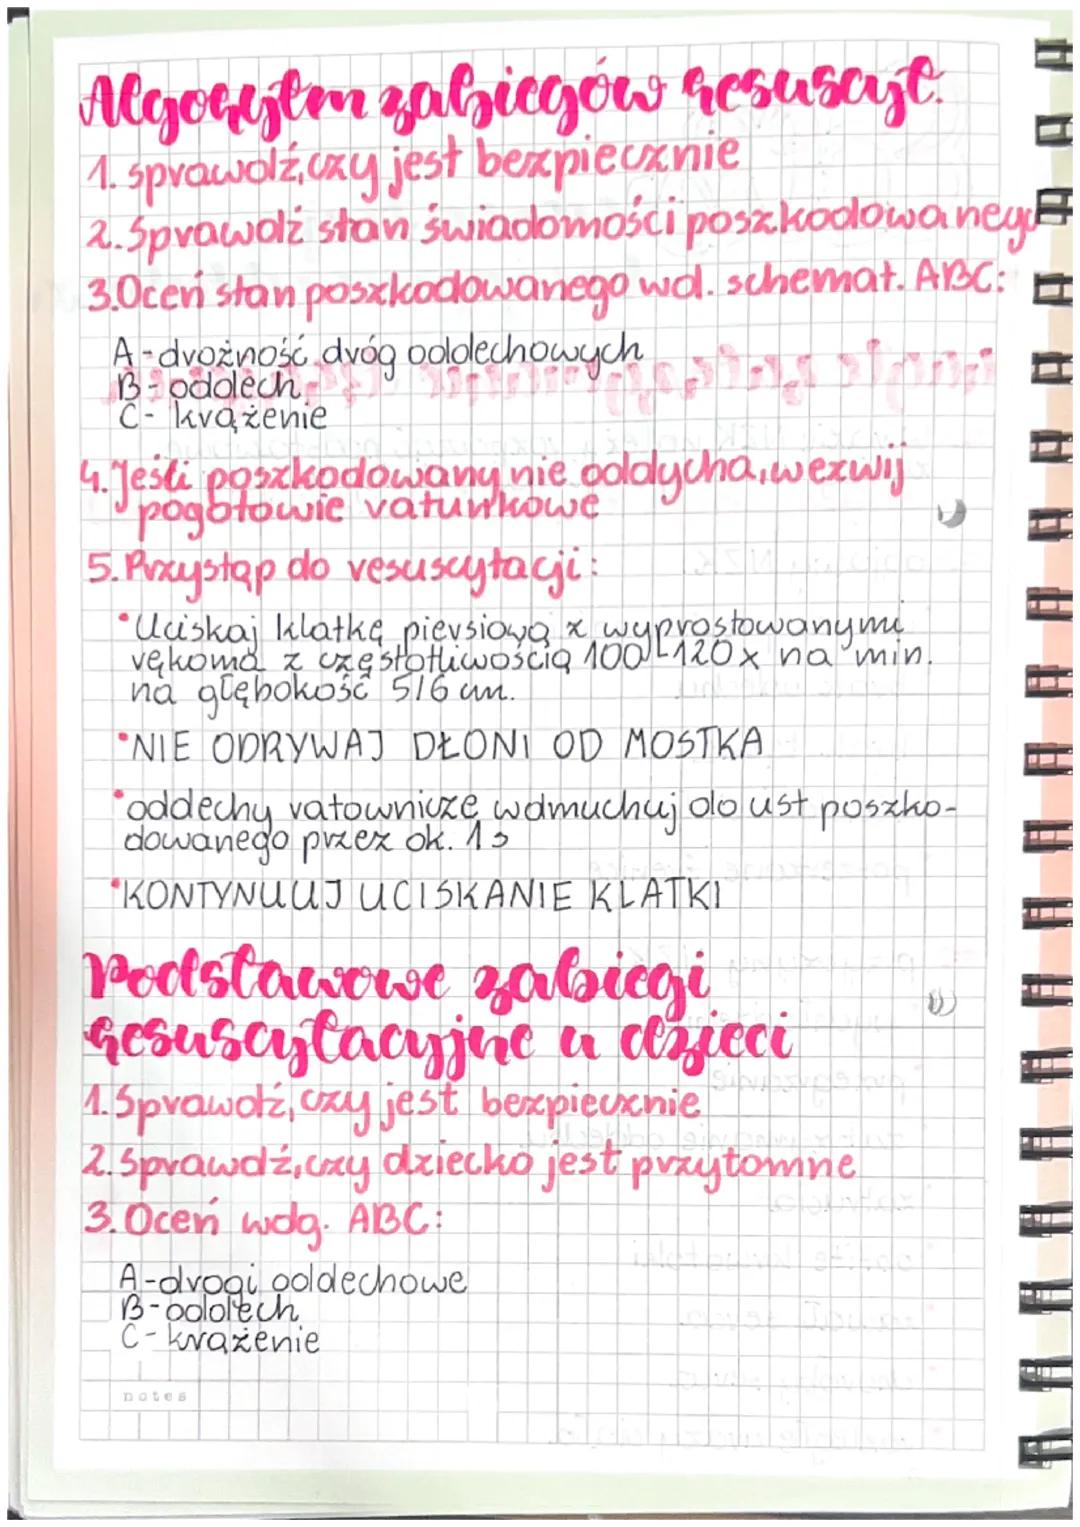 Algorytm zabiegów resuscyt.
1. sprawdź, czy jest bezpiecznie
2. Sprawdź stan świadomości poszkodowanego
3. Oceń stan poszkodowanego wd. schemat. ABC:
A - drożność dróg oddechowych
B - oddech
C - krążenie
4. Jeśli poszkodowany nie oddycha, wezwij
pogotowie ratunkowe
5. Przystąp do resuscytacji:
• Uciskaj klatkę piersiową z wyprostowanymi
rękoma z częstotliwością 100-120x na min.
na głębokość 5/6 cm.
• NIE ODRYWAJ DŁONI OD MOSTKA
• oddechy ratownicze wdmuchuj do ust poszko-
dowanego przez ok. 1s
• KONTYNUUJ UCISKANIE KLATKI
Podstawowe zabiegi
resuscytacyjne u dzieci
1. Sprawdź, czy jest bezpiecznie
2. Sprawdź, czy dziecko jest przytomne
3. Oceń wdg. ABC:
A - drogi oddechowe
B - oddech
C - krążenie
notes